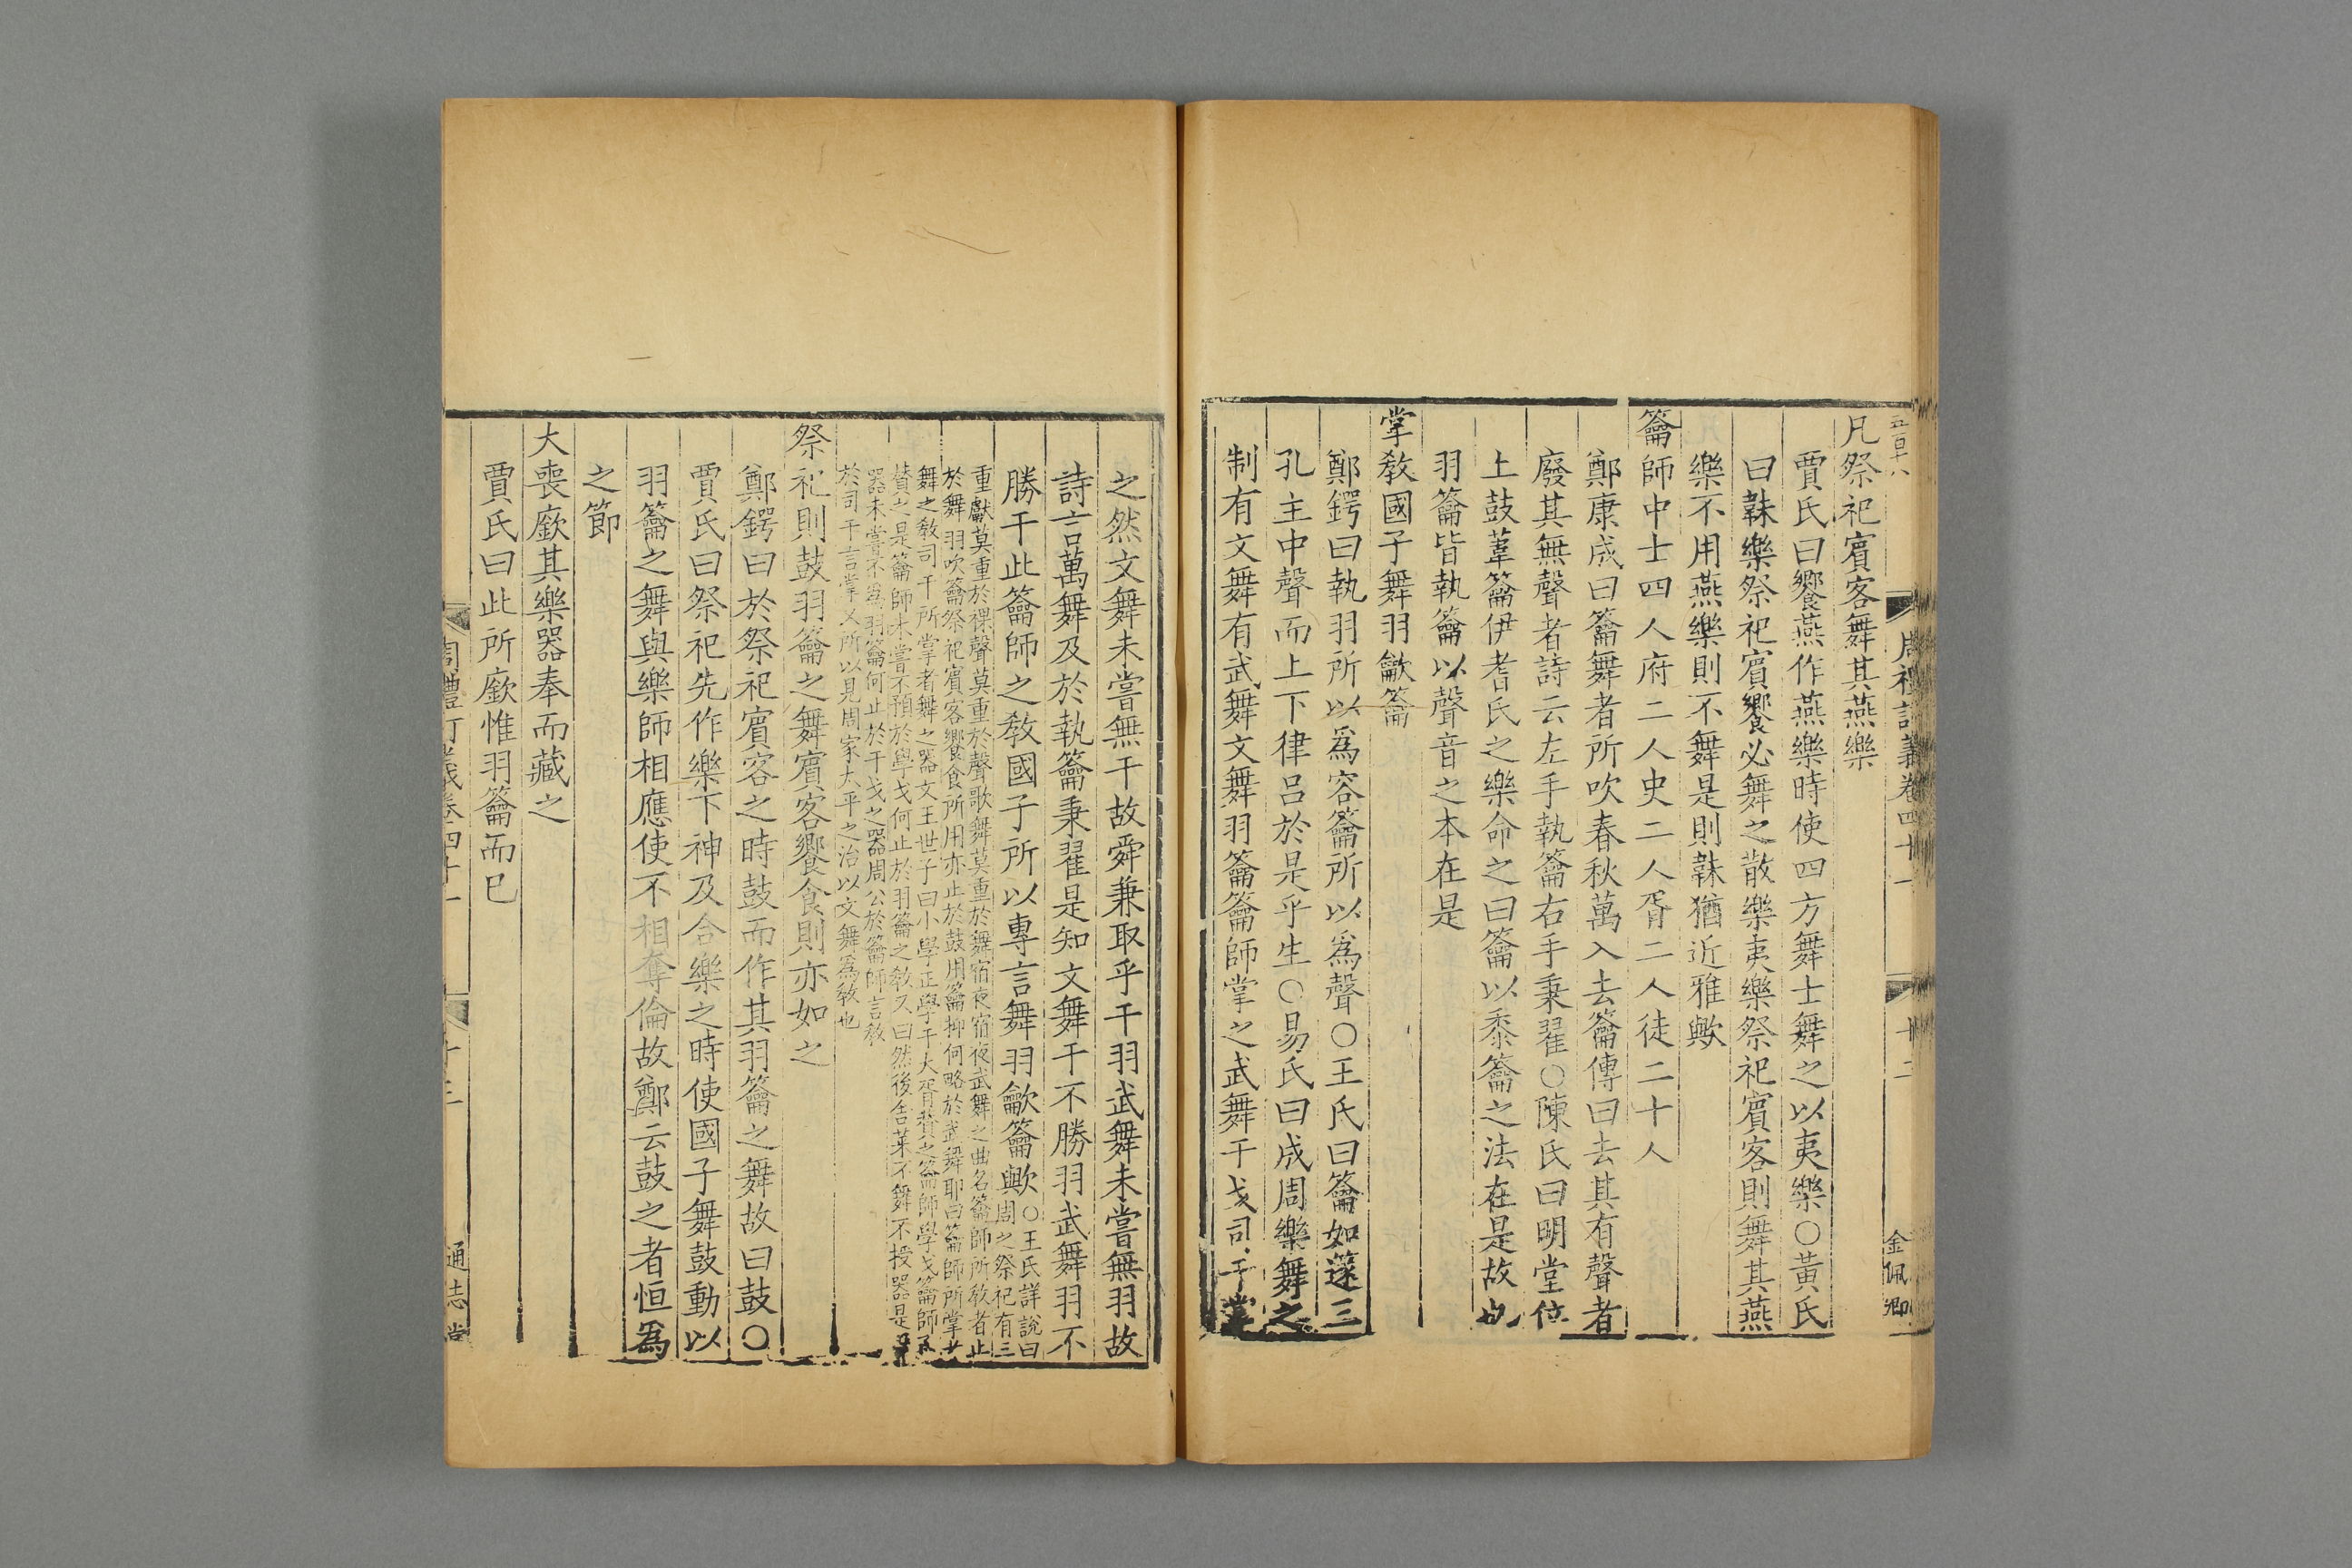 五百十八
周禮訂義卷四十一
十二
金佩卿
凡祭祀賓客舞其燕樂
賈氏曰饗燕作燕樂時使四方舞士舞之以夷樂○黃氏
曰韎樂祭祀賓饗必舞之散樂夷樂祭祀賓客則舞其燕
樂不用燕樂則不舞是則韎猶近雅歟
籥師中士四人府二人史二人胥二人徒二十人
鄭康成曰籥舞者所吹春秋萬入去籥傳曰去其有聲者
廢其無聲者詩云左手執籥右手秉翟○陳氏曰明堂位
土鼓葦籥伊耆氏之樂命之曰籥以黍籥之法在是故也
羽籥皆執籥以聲音之本在是
掌敎國子舞羽龡籥
鄭鍔曰執羽所以爲容籥所以爲聲○王氏曰籥如篴三
孔主中聲而上下律呂於是乎生○易氏曰成周樂舞之
制有文舞有武舞文舞羽籥籥師掌之武舞干戈司干掌
之然文舞未嘗無干故舜兼取乎干羽武舞未嘗無羽故
詩言萬舞及於執籥秉翟是知文舞干不勝羽武舞羽不
勝干此籥師之敎國子所以專言舞羽龡籥歟○王氏詳說曰
周之祭祀有三
重獻莫重於祼聲莫重於聲歌舞莫重於舞宿夜宿夜武舞之曲名籥師所敎者止
於舞羽吹籥祭祀賓客饗食所用亦止於鼓用籥抑何略於武舞耶曰籥師所掌
舞之敎司干所掌者舞之器文王世子曰小學正學干大胥贊之籥師學戈籥師
贊之是籥師未嘗不預於學戈何止於羽籥之敎又曰然後舍菜不舞不授器是
器未嘗不爲羽籥何止於干戈之器周公於籥師言敎
於司干言掌又所以見周家太平之治以文舞爲敎也
祭祀則鼓羽籥之舞賓客饗食則亦如之
鄭鍔曰於祭祀賓客之時鼓而作其羽籥之舞故曰鼓○
賈氏曰祭祀先作樂下神及合樂之時使國子舞鼓動以
羽籥之舞與樂師相應使不相奪倫故鄭云鼓之者恒爲
之節
大喪廞其樂器奉而藏之
賈氏曰此所廞惟羽籥而已
周禮訂義卷四十一
十三
通志堂